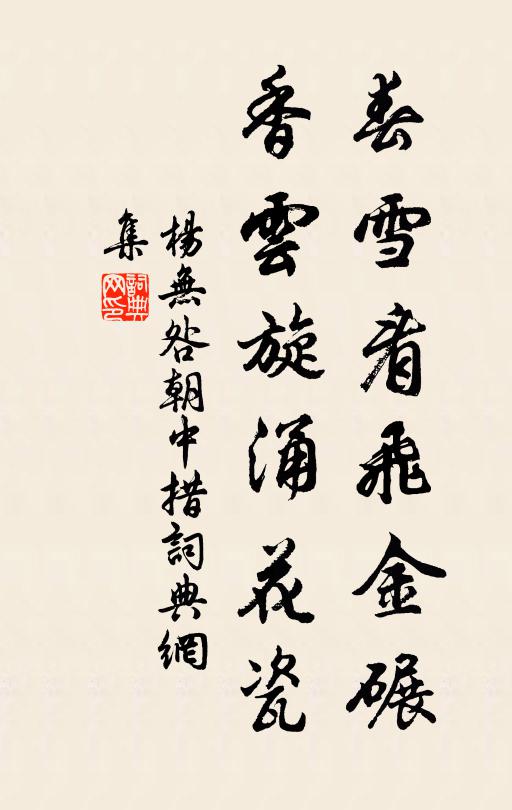 春雪看飛金碾
香雲旋涌花瓷
楊無咎朝中措詞典網
集
詞典
网印